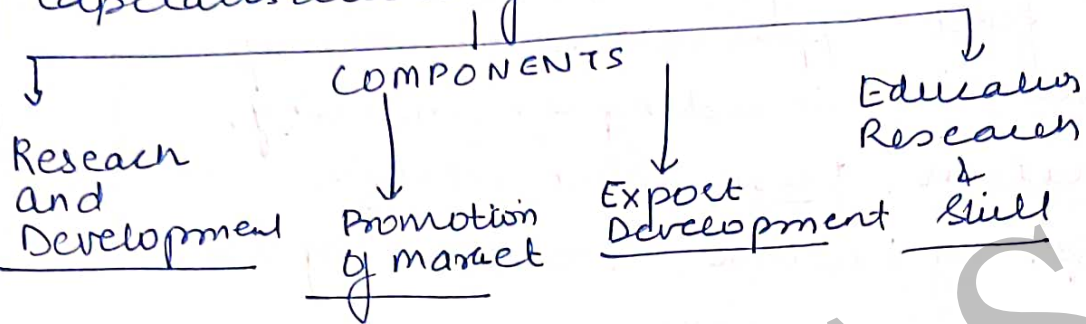 COMPONENTS
Reseach
and
Development
Promotion
of market
Export
Development
Education
Research
&
Skill